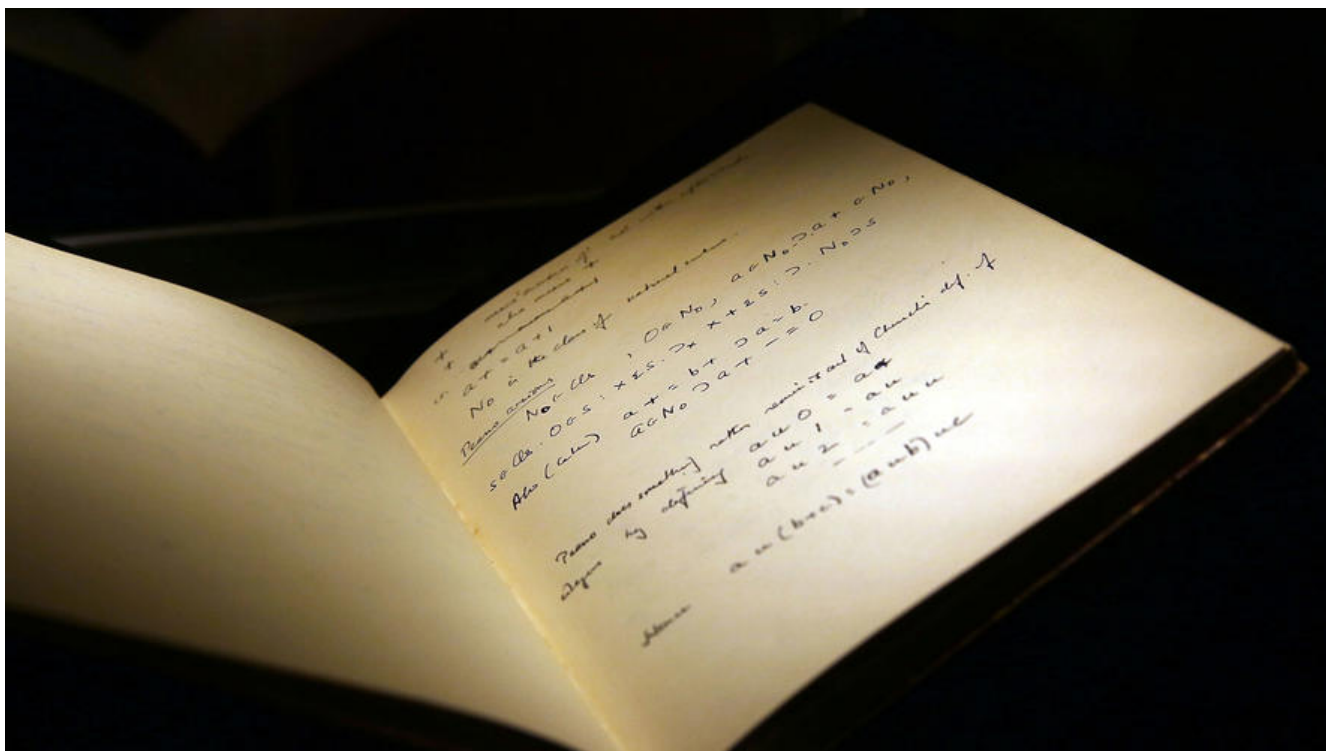 + the
+
in a+ = a+1
No is the class of natural numbers.
Peano axioms
No ε Cls , 0 ε No , a ε No .⊃. a+ ε No ,
s ε Cls . 0 ε s : x ε s . ⊃x x+ ε s : ⊃ . No ⊃ s
Also a+ = b+ ⊃ a = b.
a ε No ⊃ a+ - = 0
Peano does something rather reminiscent of Church's def. of
integers by defining a u 0 = a
a u 1 = au
a u 2 = auu
- - -
Hence a u (b+c) = (a u b) u c